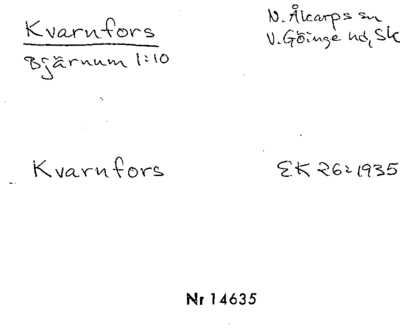 Kvarnfors
N. Åkarps sn
Bjärnum 1:10
V. Göinge hd, Sk
Kvarnfors
EK 26:1935
Nr 14635